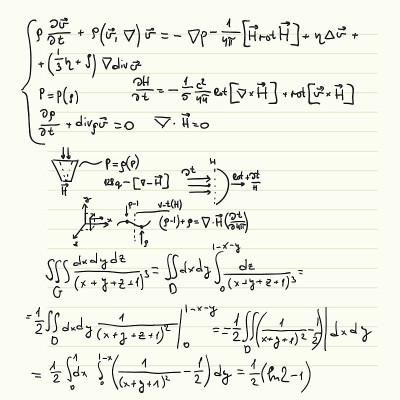 ρ ∂v⃗/∂t + ρ(v⃗, ∇) v⃗ = - ∇p - 1/4π [H⃗ rot H⃗] + ηΔv⃗ +
+ (1/3 η + ζ) ∇div v⃗
P = P(ρ) ∂H/∂t = - 1/σ c²/4π rot [∇×H⃗] + rot [v⃗×H⃗]
∂ρ/∂t + div ρv⃗ = 0 ∇·H⃗ = 0
P = ρ(P)
H⃗
H
∂t
p-1
v-t(H)
(p-1)+p = ∇·H⃗(∂t/∂H)
∭ dxdydz/(x+y+z+1)³ = ∬ dxdy ∫ dz/(x+y+z+1)³ =
G D 0 1-x-y
= 1/2 ∬ dxdy 1/(x+y+z+1)² | 0 1-x-y = - 1/2 ∬ (1/(x+y+1)² - 1/2) | dxdy
= 1/2 ∫ dx ∫ (1/(x+y+1)² - 1/2) dy = 1/2 (ln2-1)